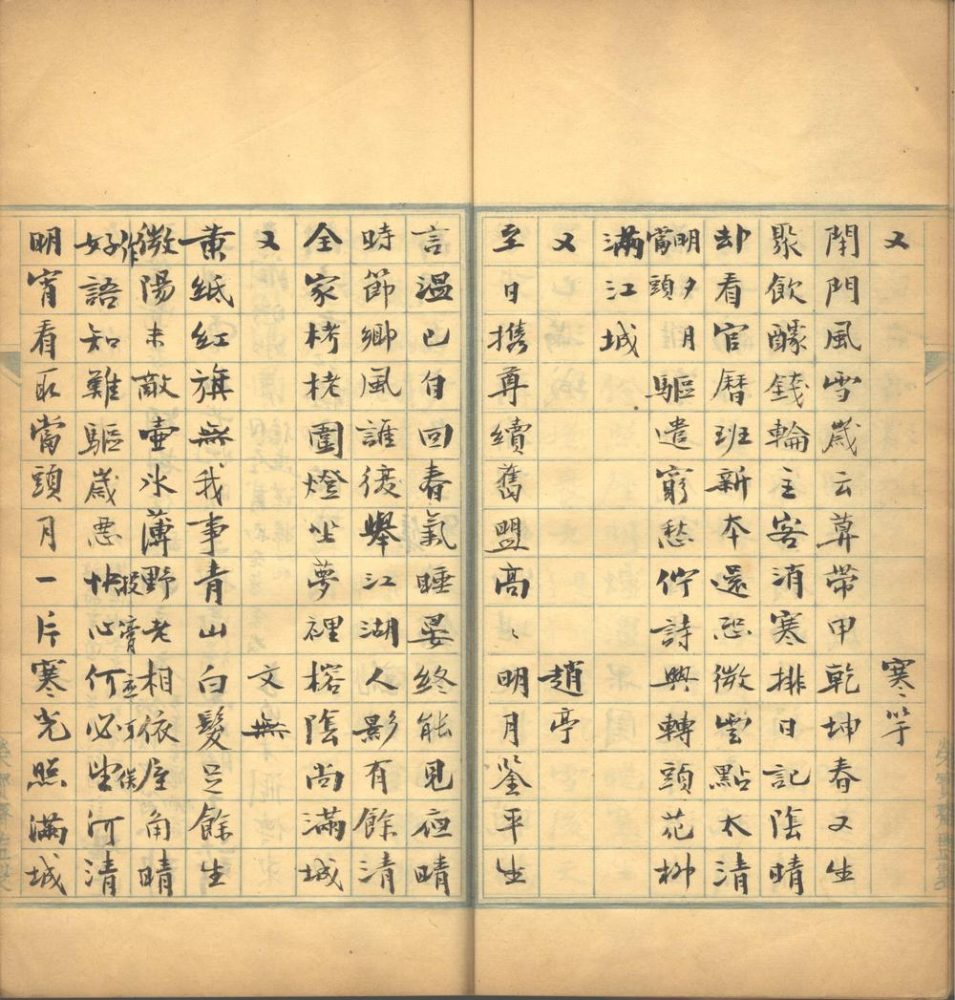 又 寒竽
閉門風雪歲云莫帶甲乾坤春又生
聚飲醵錢輪主客消寒排日記陰晴
却看官曆班新本還恐微雲點太清
明夕月當頭驅遣窮愁佇詩興轉頭花柳
滿江城
又 趙亭
至日攜尊續舊盟高〻明月鑒平生
言溫已自回春氣睡晏終能見夜晴
時節鄉風誰復舉江湖人影有餘清
全家栲栳圍燈坐夢裡榕陰尚滿城
又 文無
黃紙紅旗無我事青山白髮足餘生
微陽未敵壺冰薄野老相依屋角晴
作
好語知難驅歲惡快心何必望河清
明宵看取當頭月一片寒光照滿城